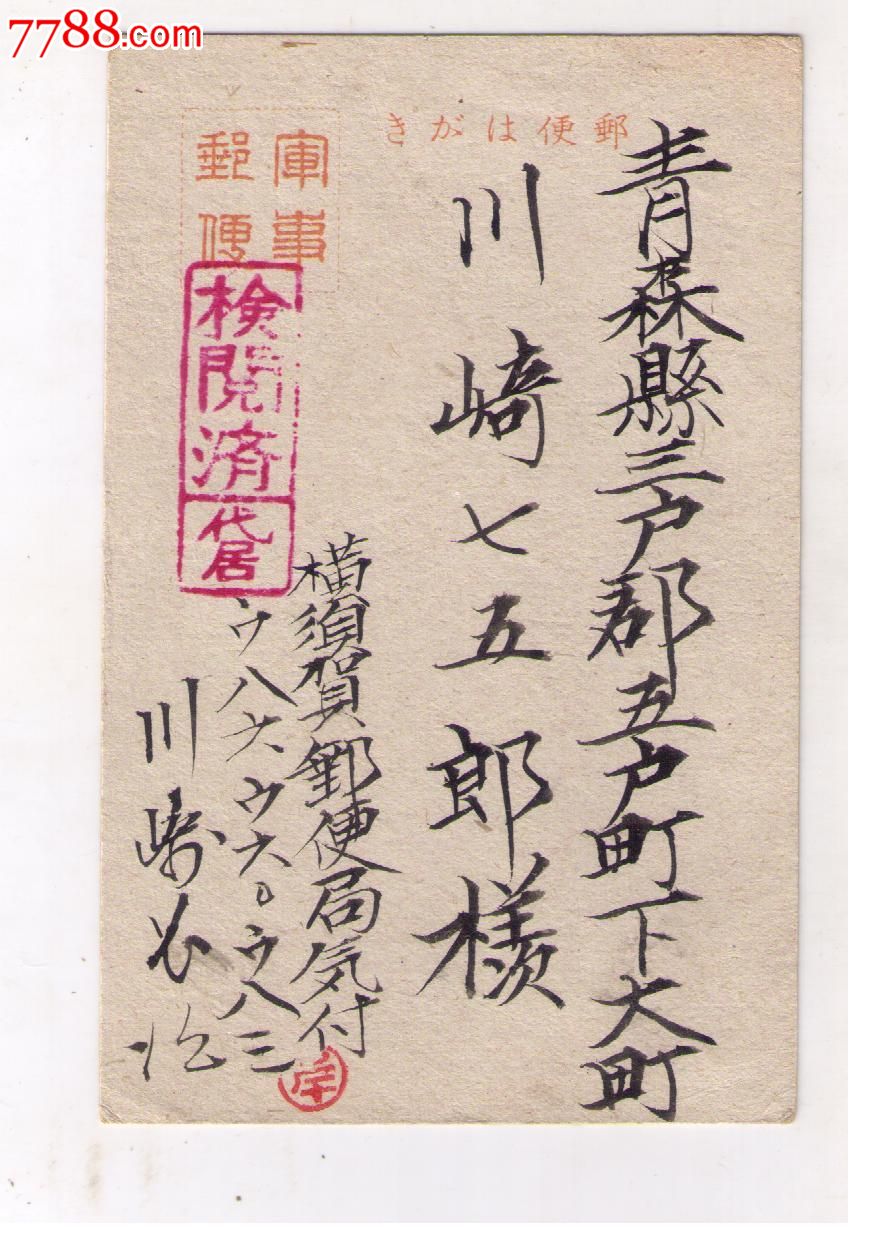 7788.com
郵便はがき
軍事
郵便
検閲済
代居
青森縣三戸郡五戸町下大町
川崎七五郎様
横須賀郵便局気付
ウ八六、ウ六〇ウ八三
川崎